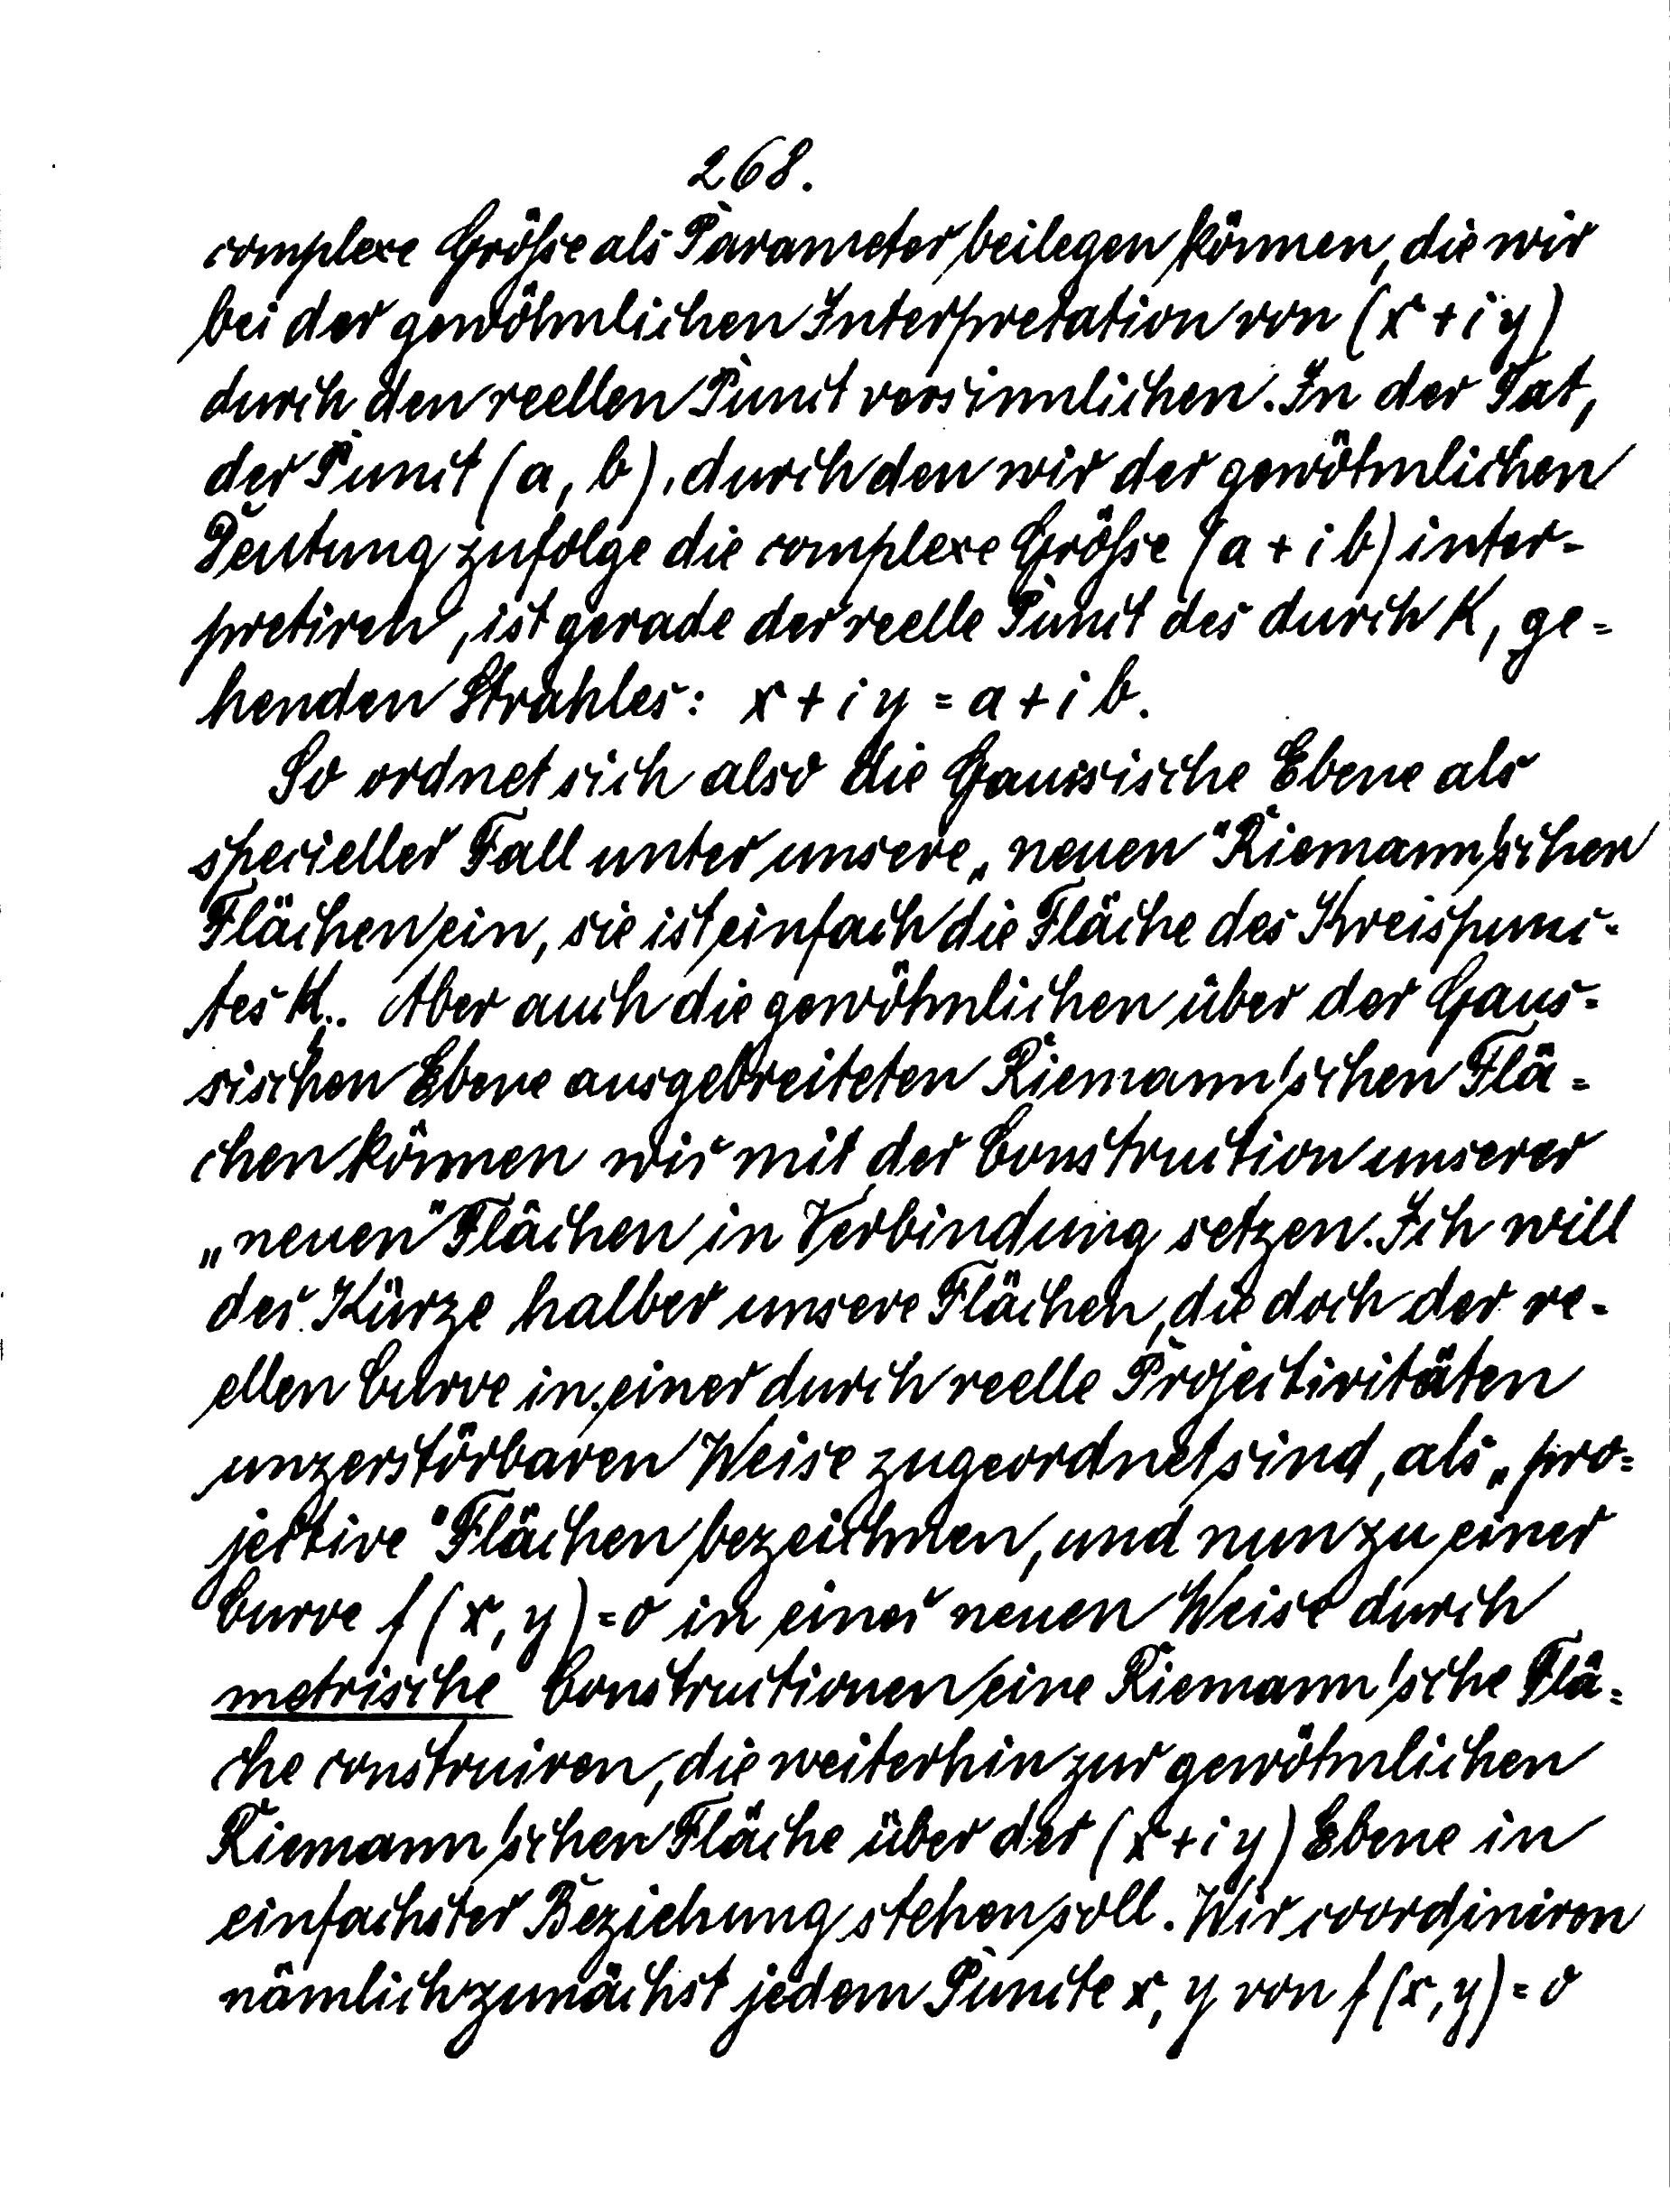 268.
complexe Größe als Parameter beilegen können, die wir
bei der gewöhnlichen Interpretation von (x + i y)
durch den reellen Punct versinnlichen. In der Tat,
der Punct (a, b), durch den wir der gewöhnlichen
Deutung zufolge die complexe Größe (a + i b) inter-
pretiren, ist gerade der reelle Punct des durch K, ge-
henden Strahles: x + i y = a + i b.
So ordnet sich also die Gaussische Ebene als
specieller Fall unter unsere „neuen" Riemann'schen
Flächen ein, sie ist einfach die Fläche des Kreispunc-
tes K,. Aber auch die gewöhnlichen über der Gaus-
sischen Ebene ausgebreiteten Riemann'schen Flä-
chen können wir mit der Construction unserer
„neuen" Flächen in Verbindung setzen. Ich will
der Kürze halber unsere Flächen, die doch der re-
ellen Curve in einer durch reelle Projectivitäten
unzerstörbaren Weise zugeordnet sind, als „pro-
jective" Flächen bezeichnen, und nun zu einer
Curve f (x, y) = 0 in einer neuen Weise durch
metrische Constructionen eine Riemann'sche Flä-
che construiren, die weiterhin zur gewöhnlichen
Riemann'schen Fläche über der (x + i y) Ebene in
einfachster Beziehung stehen soll. Wir coordiniren
nämlich zunächst jedem Puncte x, y von f (x, y) = 0